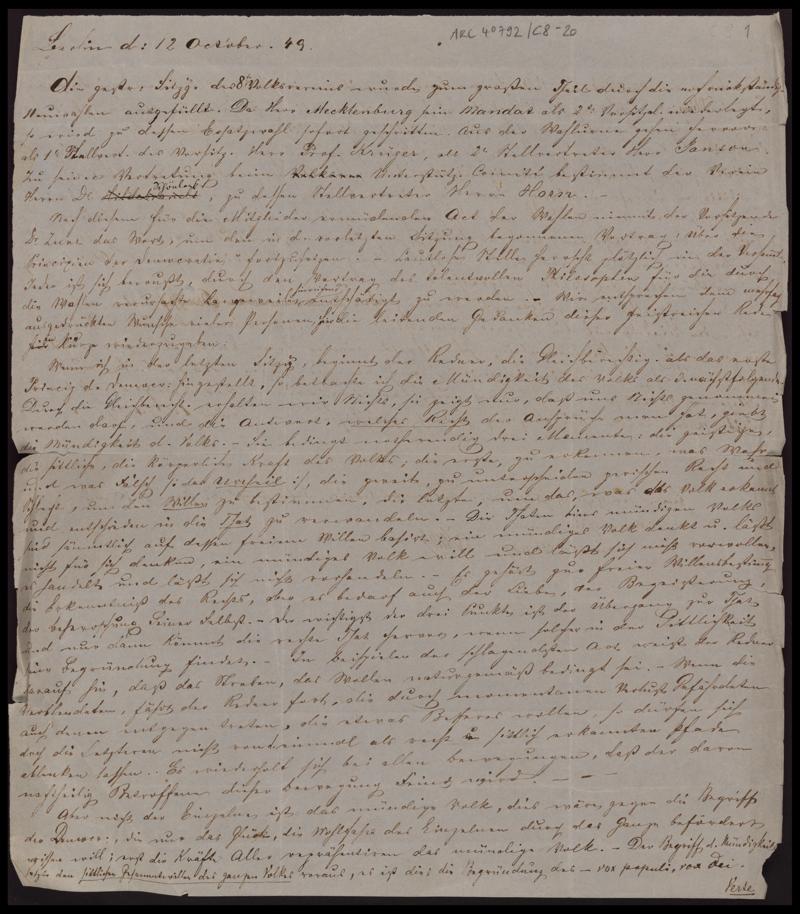 ARC 40792/C8-20
1
Berlin d: 12 October. 49.
Die gestr. Sitzg. des 8t Volksvereins wurde zum großen Theil durch die
Neuwahlen ausgefüllt. Da Herr Mecklenburg sein Mandat als 2r Vorsitzd. niederlegte,
so wird zu dessen Ersatzwahl sofort geschritten. Aus der Wahlurne gehen hervor:
als 1r Stellvert. des Vorsitz. Herr Prof. Krüger, als 2r Stellvertreter Herr Janson.
Zu seiner Vertretung beim Unterstütz. Comité bestimmt der Verein
Herrn Dr. , zu dessen Stellvertreter Herrn Horn. -
Nach diesem für die Mitglieder ermüdenden Act der Wahlen nimmt der Vorsitzende
Dr. das Wort, um den in der vorletzten Sitzung begonnenen Vortrag: "Über die
Principien der Democratie" fortzusetzen. - Lautlose Stille herrscht plötzlich in der
Jeder ist sich bewußt, durch den Vortrag des talentvollen Philosophen für die durch
die Wahlen verursachte Langeweile entschädigt zu werden. - Wir entsprechen dem
ausgedrückten Wunsche vieler Personen, die leitenden Gedanken dieser geistreichen Rede
in Kürze wiederzugeben.
Wenn ich in der letzten Sitzg., beginnt der Redner, die Gleichberechtig. als das erste
Princip der Democr. hingestellt, so betrachte ich die Mündigkeit des Volks als
Durch die Gleichberecht. erhalten wir Nichts, sie zeigt nur, daß uns Nichts genommen
werden darf, und die Antwort, welches Recht der Ansprüche man hat, giebt
die Mündigkeit d. Volks. - Sie bedingt nothwendig drei Momente: die geistige,
die sittliche, die körperliche Kraft des Volks; die erste, zu erkennen, was Wahr
und was Falsch ist, das Urtheil :/, die zweite, zu unterscheiden zwischen Recht und
, um den Willen zu bestimmen, die letzte, um das, was das Volk erkannt
und entschieden in die That zu verwandeln. - Die Thaten eines mündigen Volks
sind sämmtlich auf dessen freiem Willen basirt; ein mündiges Volk denkt u. läßt
nicht für sich denken, ein mündiges Volk will und läßt sich nicht vorwollen,
es handelt und läßt sich nicht vorhandeln. - Es gehört zur freien
die Erkenntniß des Rechts, aber es bedarf auch der Liebe, der Begeisterung,
der Beherrschung seiner Selbst. - Der wichtigste der drei Punkte ist der Übergang zur That
und nur dann kömmt die rechte That hervor, wenn solche in der Sittlichkeit
ihre Begründung findet. - In Beispielen der schlagendsten Art weist der Redner
darauf hin, daß das Streben, das Wollen naturgemäß bedingt sei. - Wenn die
Verblendeten, fährt der Redner fort, die durch momentanen Verlust Gefährdeten
auch denen entgegen treten, die etwas Besseres wollen, so dürfen sich
doch die Letzteren nicht von einmal als recht u sittlich erkannten Pfade
ablenken lassen. Es wiederholt sich bei allen Bewegungen, daß der davon
nachtheilig Betroffene dieser Bewegung Feind wird. - - -
Aber nicht der Einzelne ist das mündige Volk, dies wäre gegen die Begriffe
der Democr., die nur das Glück, die Wohlfahrt des Einzelnen durch das Ganze befördert
wissen will; erst die Kräfte Aller repräsentiren das mündige Volk. - Der Begriff d. Mündigkeit
setzt den sittlichen Gesammtwillen des ganzen Volks voraus, es ist dies die Begründung des - vox populi, vox dei -
Verte